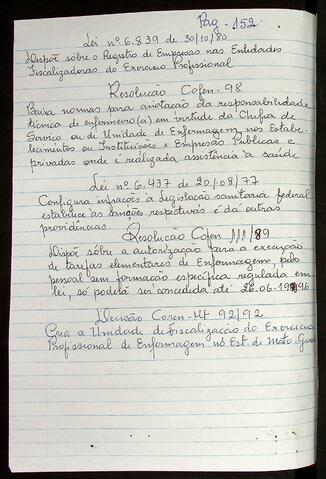 Pag - 152.
Lei nº 6.839 de 30/10/80
Dispõe sôbre o Registro de Empresas nas Entidades
Fiscalizadoras do Exercicio Profissional
Resolucão Cofen-98
Baixa normas para anotação da responsabilidade
técnica de enfermeiro(a) em virtude da Chefia de
Serviço ou de Unidade de Enfermagem, nos Estabe-
lecimentos ou Instituições e Empresas Públicas e
privadas onde é realizada assistência à saúde
Lei nº 6.437 de 20/08/77
Configura infrações à Legislação sanitaria federal
estabelece as sanções respectivas e dá outras
providências.
Resolucão Cofen 111/89
Dispõe sôbre a autorização para a execução
de tarefas elementares de Enfermagem, pelo
pessoal sem formação especifica regulada em
lei, só poderá ser concedida até 26.06.1996
Decisão Coren-Mt 92/92
Cria a Unidade de Fiscalização do Exercicio
Profissional de Enfermagem no Est. de Mato-